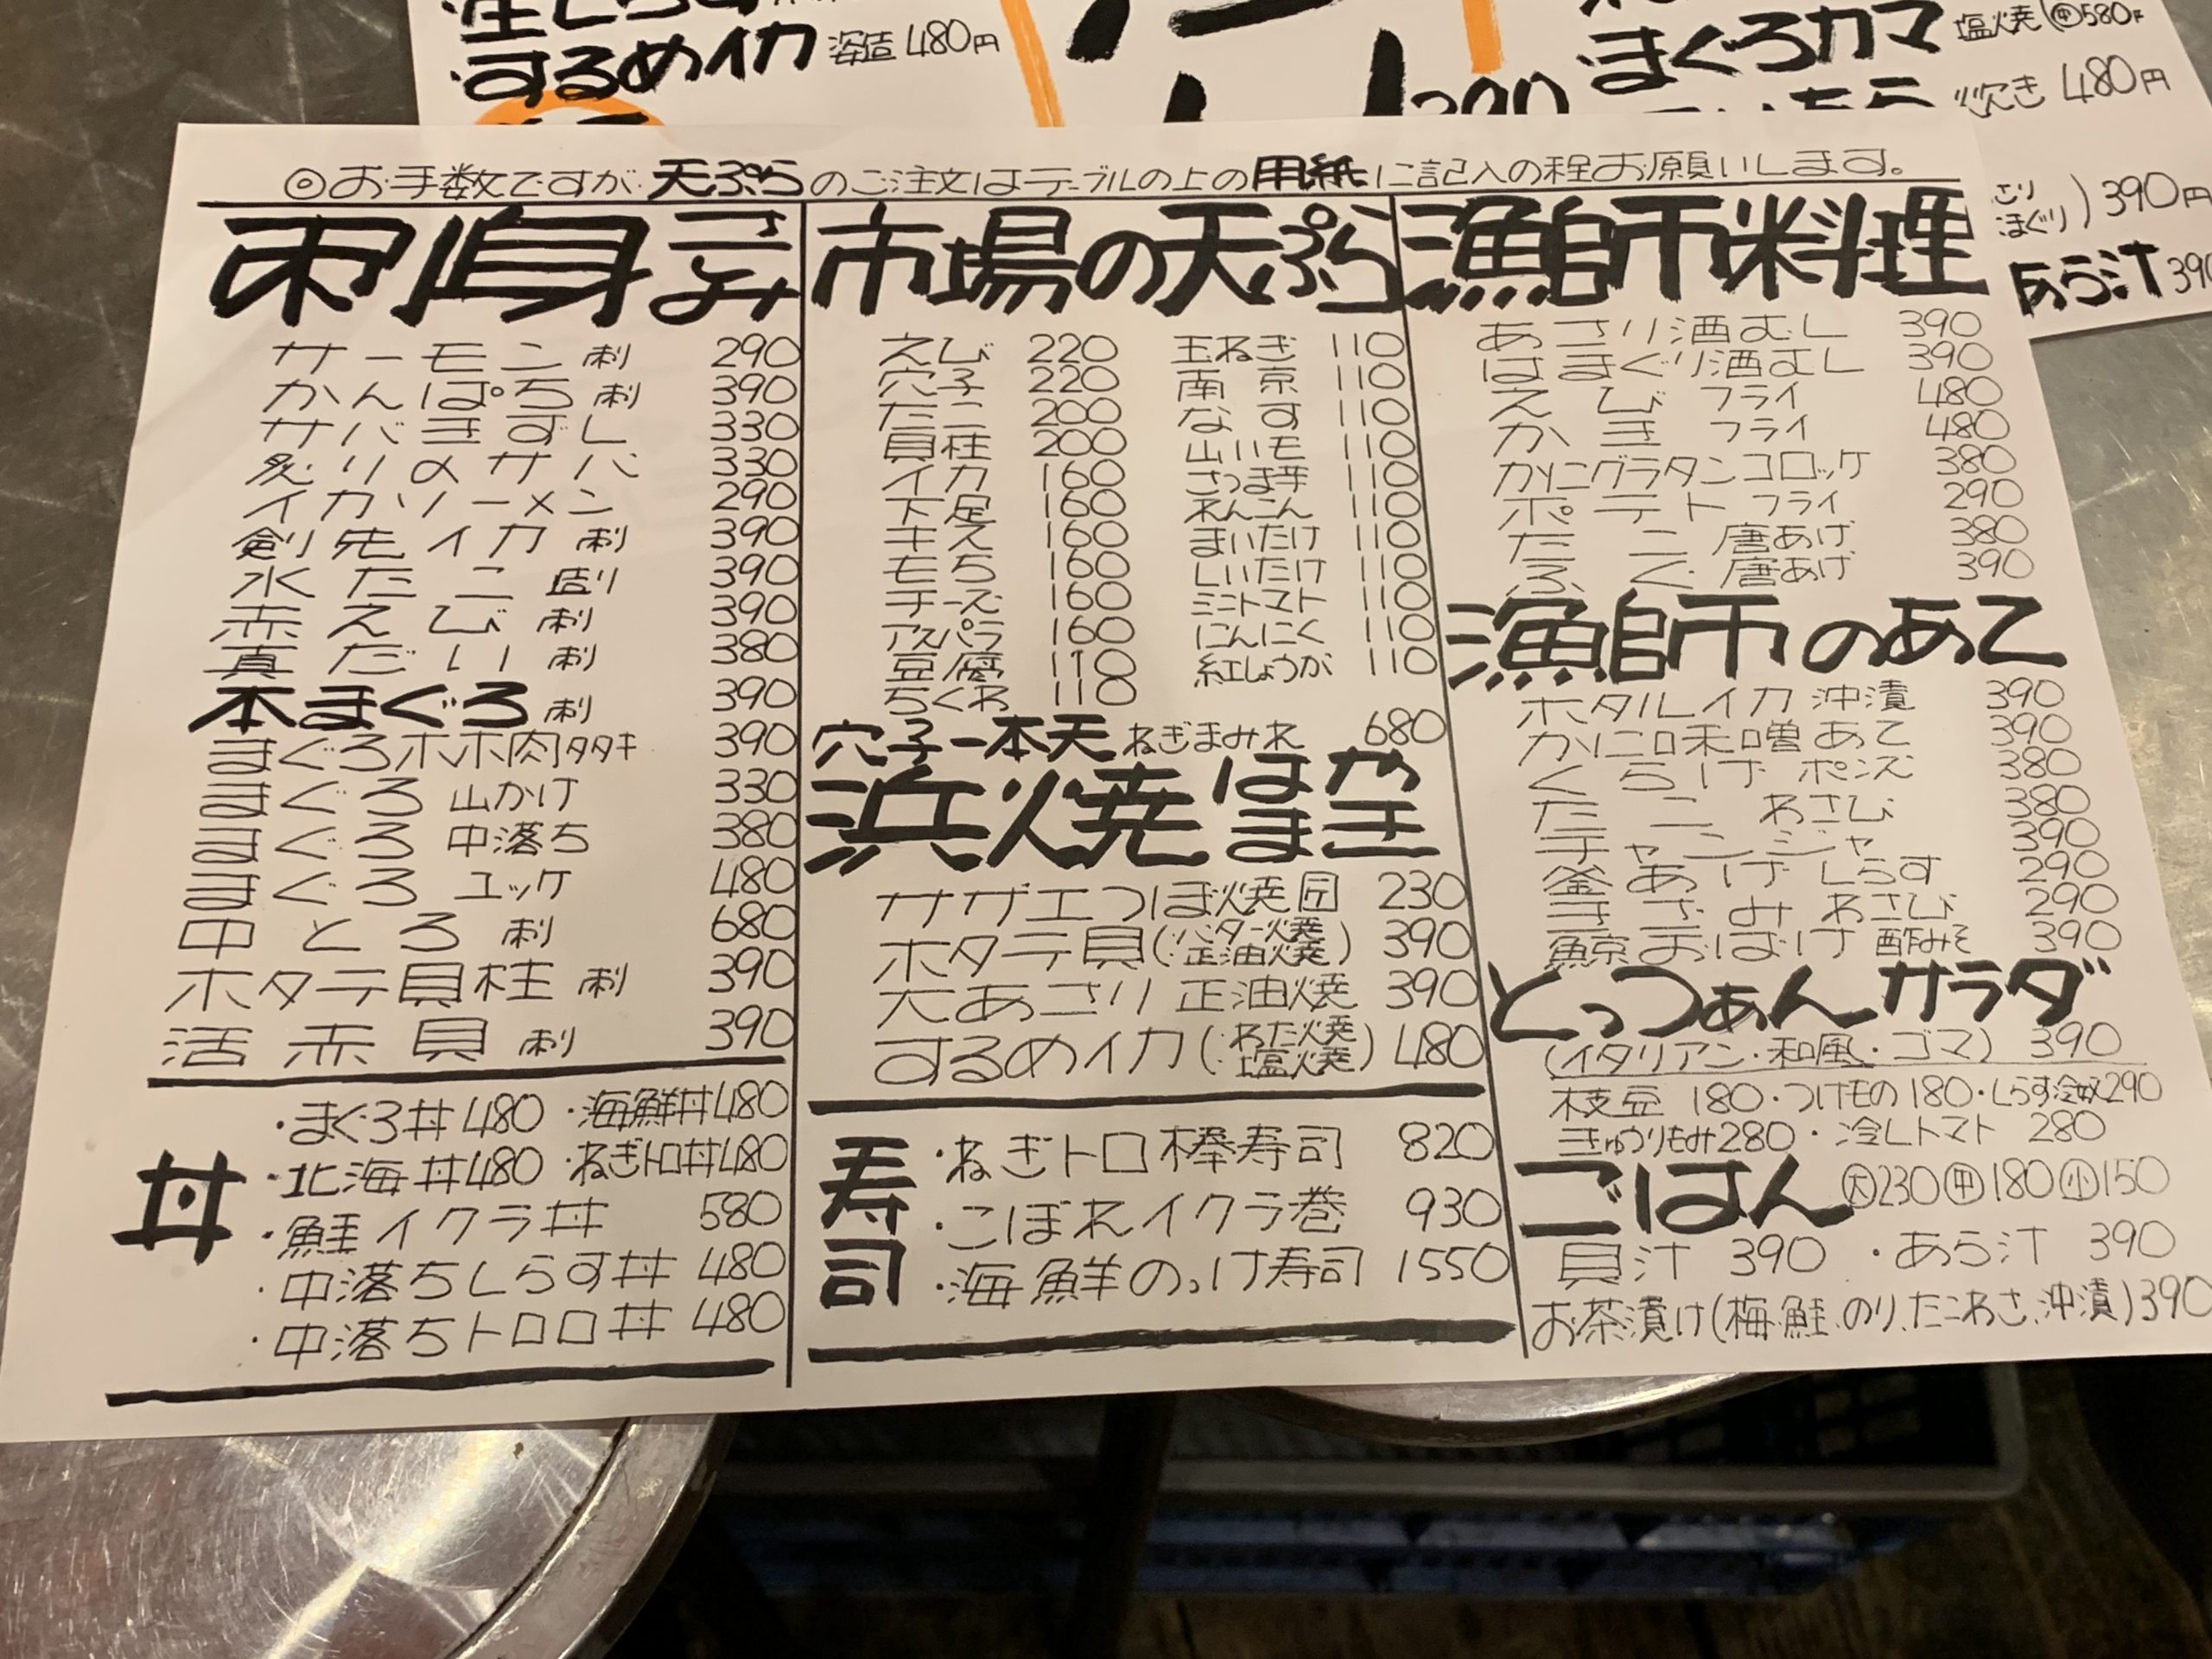 するめイカ 姿造 480円
まぐろカマ 塩焼(中580
炊き 480円
)390円
あら汁 390
◎お手数ですが天ぷらのご注文はテーブルの上の用紙に記入の程お願いします。
刺身
サーモン刺 290
かんぱち刺 390
サバきずし 330
炙りメサバ 330
イカソーメン 290
剣先イカ刺 390
水たこ造り 390
赤えび刺 390
真だい刺 380
本まぐろ刺 390
まぐろホホ肉タタキ 390
まぐろ山かけ 330
まぐろ中落ち 380
まぐろユッケ 480
中とろ刺 680
ホタテ貝柱刺 390
活赤貝刺 390
丼
・まぐろ丼480 ・海鮮丼480
・北海丼480 ・ねぎトロ丼480
・鮭イクラ丼 580
・中落ちしらす丼 480
・中落ちトロロ丼 480
市場の天ぷら
えび 220 玉ねぎ 110
穴子 220 南京 110
たこ 200 なす 110
貝柱 200 山いも 110
イカ 160 さつま芋 110
下足 160 れんこん 110
キス 160 まいたけ 110
もち 160 しいたけ 110
チーズ 160 ミニトマト 110
アスパラ 160 にんにく 110
豆腐 110 紅しょうが 110
ちくわ 110
穴子一本天 ねぎまみれ 680
浜焼 はまやき
サザエつぼ焼 230
ホタテ貝(バター焼 正油焼) 390
大あさり 正油焼 390
するめイカ(・わた焼 ・塩焼) 480
寿司
・ねぎトロ棒寿司 820
・こぼれイクラ巻 930
・海鮮のっけ寿司 1550
漁師料理
あさり酒むし 390
はまぐり酒むし 390
えびフライ 480
かきフライ 480
カニグラタンコロッケ 380
ポテトフライ 290
たこ唐あげ 380
ふぐ唐あげ 390
漁師のあて
ホタルイカ沖漬 390
カニ味噌あて 390
くらげポン酢 380
たこわさび 380
チャンジャ 390
釜あげしらす 290
きざみわさび 290
鯨おばけ 酢みそ 390
とっつぁんサラダ
(イタリアン・和風・ゴマ) 390
枝豆 180・つけもの180・しらす冷奴290
きゅうりもみ280・冷しトマト 280
ごはん 大230 中180 小150
貝汁 390 ・あら汁 390
お茶漬け(梅.鮭.のり.たこわさ.沖漬)390